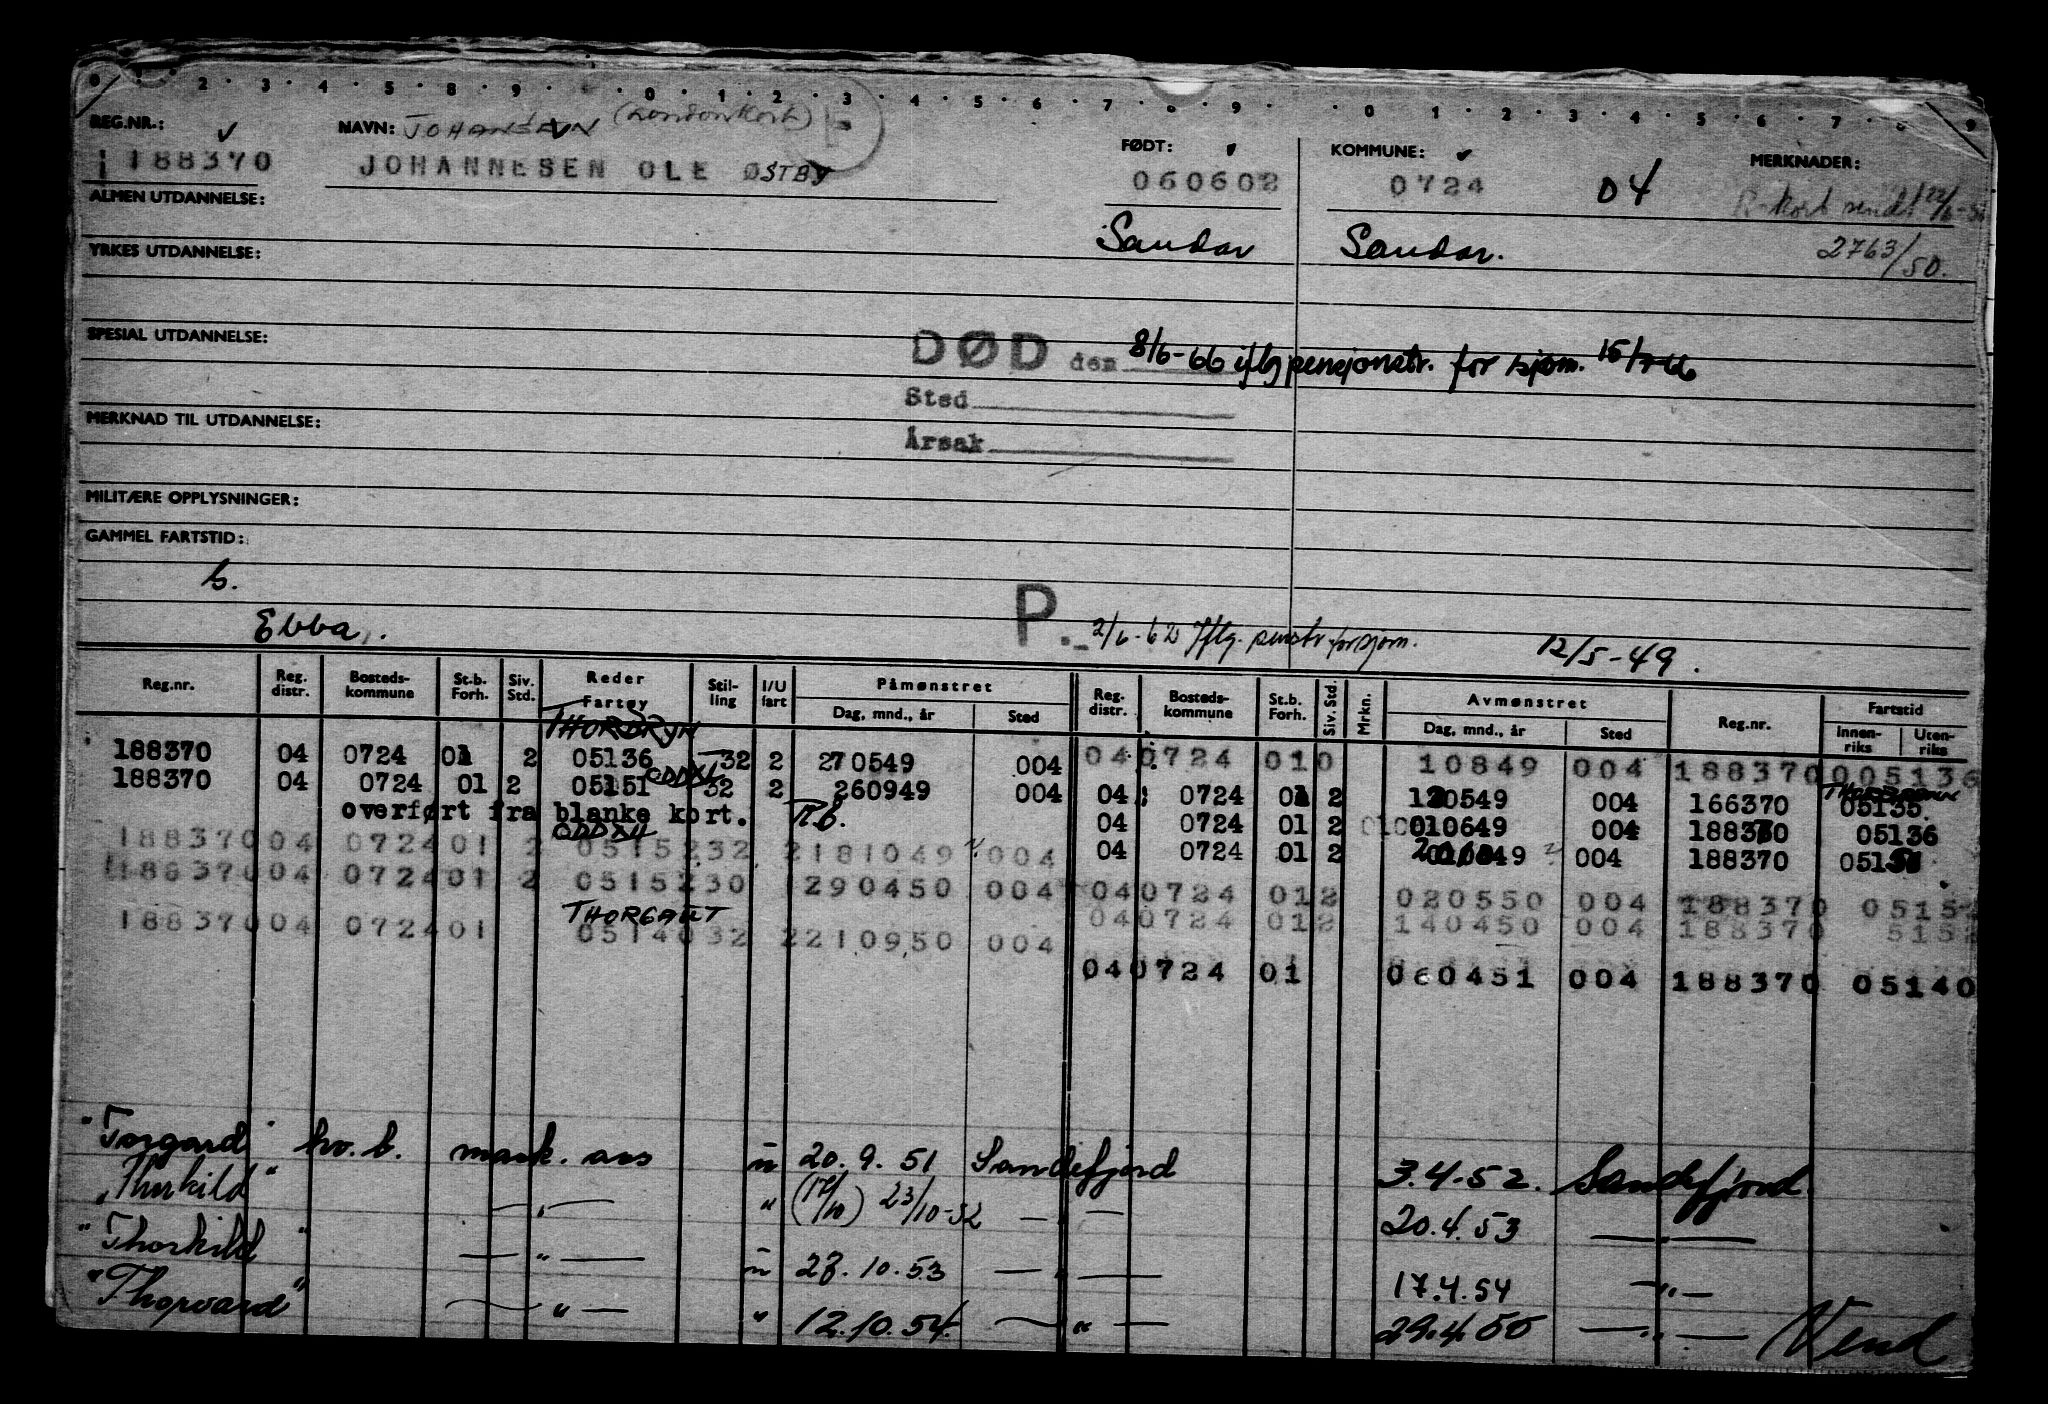 0 · 1 · 2 · 3 · 4 · 5 · 8 · 9 · · 0 · 1 · 2 · 3 · 4 · 5 · 6 · 7 · 8 · 9 · · 0 · 1 · 2 · 3 · 4 · 5 · 6 · 7 · 8 · 9
REG.NR.: NAVN: JOHANSEN (Londonkort) FØDT: KOMMUNE: MERKNADER:
188370 JOHANNESEN OLE ØSTBY 060602 0724 04 R-kort sendt
ALMEN UTDANNELSE: Sandar Sandar. 2763/50.
YRKES UTDANNELSE:
SPESIAL UTDANNELSE:
DØD den 8/6-66 iflg pensjonstr. for sjøm. 15/7-66
Sted
MERKNAD TIL UTDANNELSE:
Årsak
MILITÆRE OPPLYSNINGER:
GAMMEL FARTSTID:
b.
Ebba. P. 2/6-62 Iflg. penstr. for sjøm. 12/5-49.
Reg.nr. Reg. distr. Bosteds-kommune St.b. Forh. Siv. Std. Reder Fartøy Stil-ling I/U fart Påmønstret Dag, mnd., år Sted Reg. distr. Bosteds-kommune St.b. Forh. Siv. Std. Mrkn. Avmønstret Dag, mnd., år Sted Reg.nr. Fartstid Innen-riks Uten-riks
THORBRYN
188370 04 0724 01 2 05136 32 2 270549 004 04 0724 010 10849 004 188370 005136
188370 04 0724 01 2 05151 ODDXL 32 2 260949 004 04 0724 01 2 120549 004 166370 05135
overført fra blanke kort. 04 0724 01 2 010649 004 188370 05136
ODDXH
188370 04 0724 01 2 05152 32 2 181049 004 04 0724 01 2 004 188370
188370 04 0724 01 2 05152 30 290450 004 04 0724 01 2 020550 004 188370 05152
THORGAUT
188370 04 0724 01 05140 32 2 210950 004 04 0724 01 2 140450 004 188370 5152
04 0724 01 060451 004 188370 05140
"Torgard" hv.b. mask. ass ü 20. 9. 51 Sandefjord 3.4-52. Sandefjord
"Thorkild" — " — " (17/10) 23/10-52 — " — 20.4.53 — " —
"Thorkild" — " — ü 27. 10. 53 — " — 17.4.54 — " —
"Thorvard" — " — " 12.10.54. — " — 29.4.55 — " — Vend